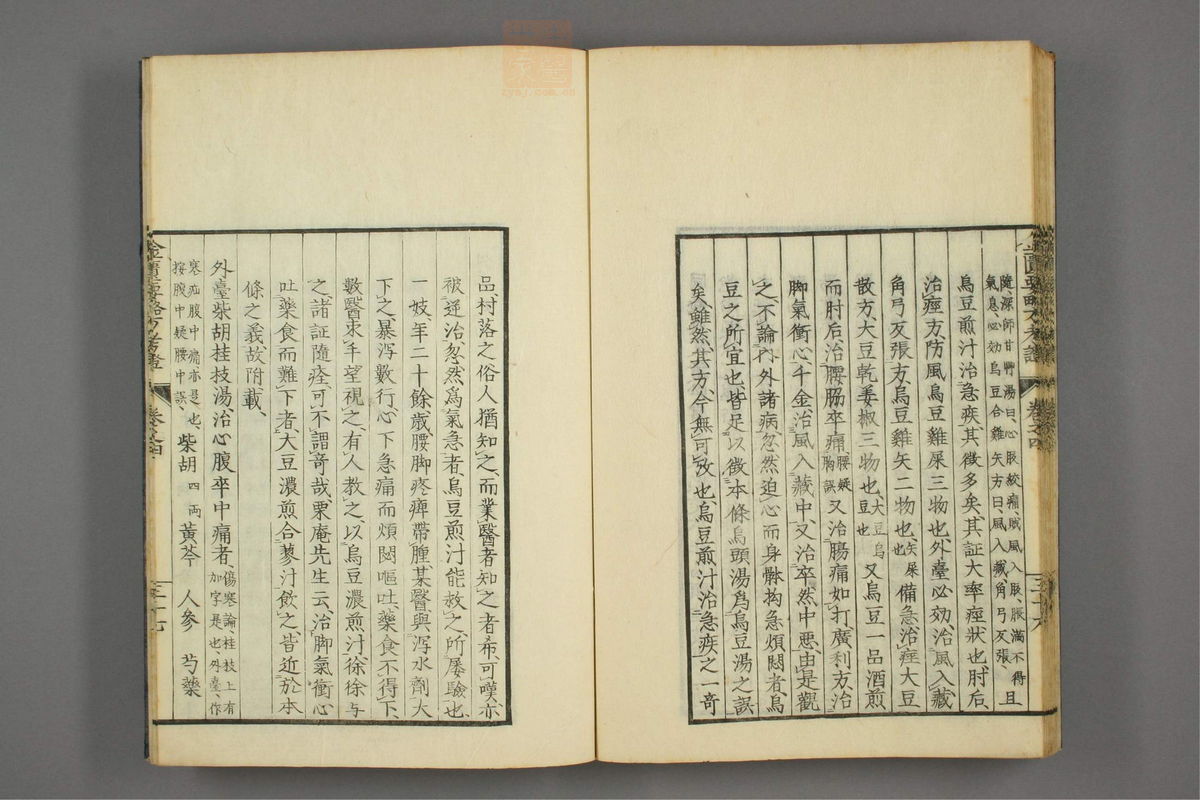 金匱要略方考證 卷之四 三十六
隨、深師甘艸湯曰、心腹絞痛、賊風入腹、脹滿不得
氣息必効烏豆合雞矢方曰、風入藏、角弓反張、
且
烏豆煎汁治急疾、其徵多矣、其証大率痙狀也、肘后、
治痙方、防風烏豆雞屎三物也、外臺必効、治風入藏
角弓反張方、烏豆雞矢二物也、矢屎也備急治痙大豆
散方、大豆乾姜椒三物也、大豆烏豆也又烏豆一品酒煎
而肘后、治腰脇卒痛、腰疑胸誤又治腸痛如打、廣利方治
脚氣衝心、千金治風入藏中、又治卒然中悪、由是觀
之、不論內外諸病忽然迫心而身體拘急煩悶者、烏
豆之所宜也、皆足以徵本條烏頭湯爲烏豆湯之誤
矣、雖然其方、今無可攷也、烏豆煎汁治急疾之一奇
品村落之俗人猶知之、而業醫者知之者希、可嘆、亦
被逆治、忽然爲氣急者、烏豆煎汁能救之、所屡驗也、
一妓、年二十餘歲腰脚疼痺帶腫、某醫與瀉水劑大
下之、暴瀉數行、心下急痛而煩悶嘔吐、藥食不得下、
數醫束手望視之、有人教之、以烏豆濃煎汁、徐徐与
之諸証隨痊、可不謂奇哉栗庵先生云、治脚氣衝心
吐藥食而難下者、大豆濃煎合蓼汁飲之、皆近於本
條之義故附載、
外臺柴胡桂枝湯、治心腹卒中痛者、傷寒論、桂枝上有
加字是也、外臺、作
寒疝腹中痛、亦是也、
按腹中疑腰中誤、
柴胡四両 黃芩 人參 芍藥
金匱要略方考證 卷之四 三十七